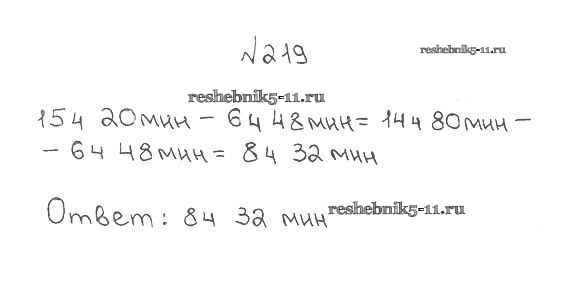 №219
reshebnik5-11.ru
reshebnik5-11.ru
15ч 20мин - 6ч 48мин = 14ч 80мин -
- 6ч 48мин = 8ч 32 мин
Ответ: 8ч 32 мин
reshebnik5-11.ru